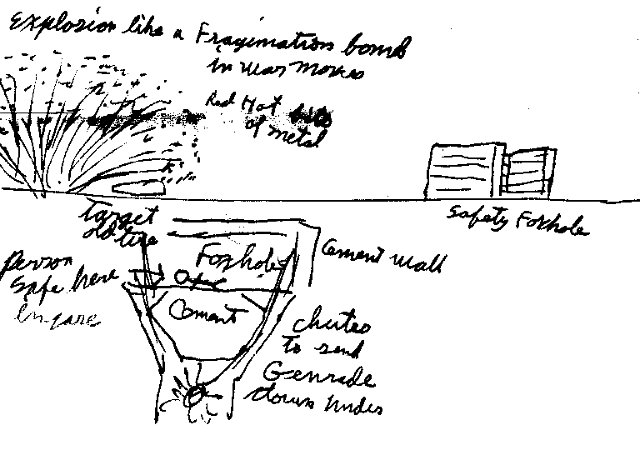 Explosion like a Fragimation bomb
in war movies
Red Hot bits
of metal
Safety Foxhole
target
old tire
Foxhole
Cement wall
person
safe here
Cement
chutes
to send
Genrade
down under